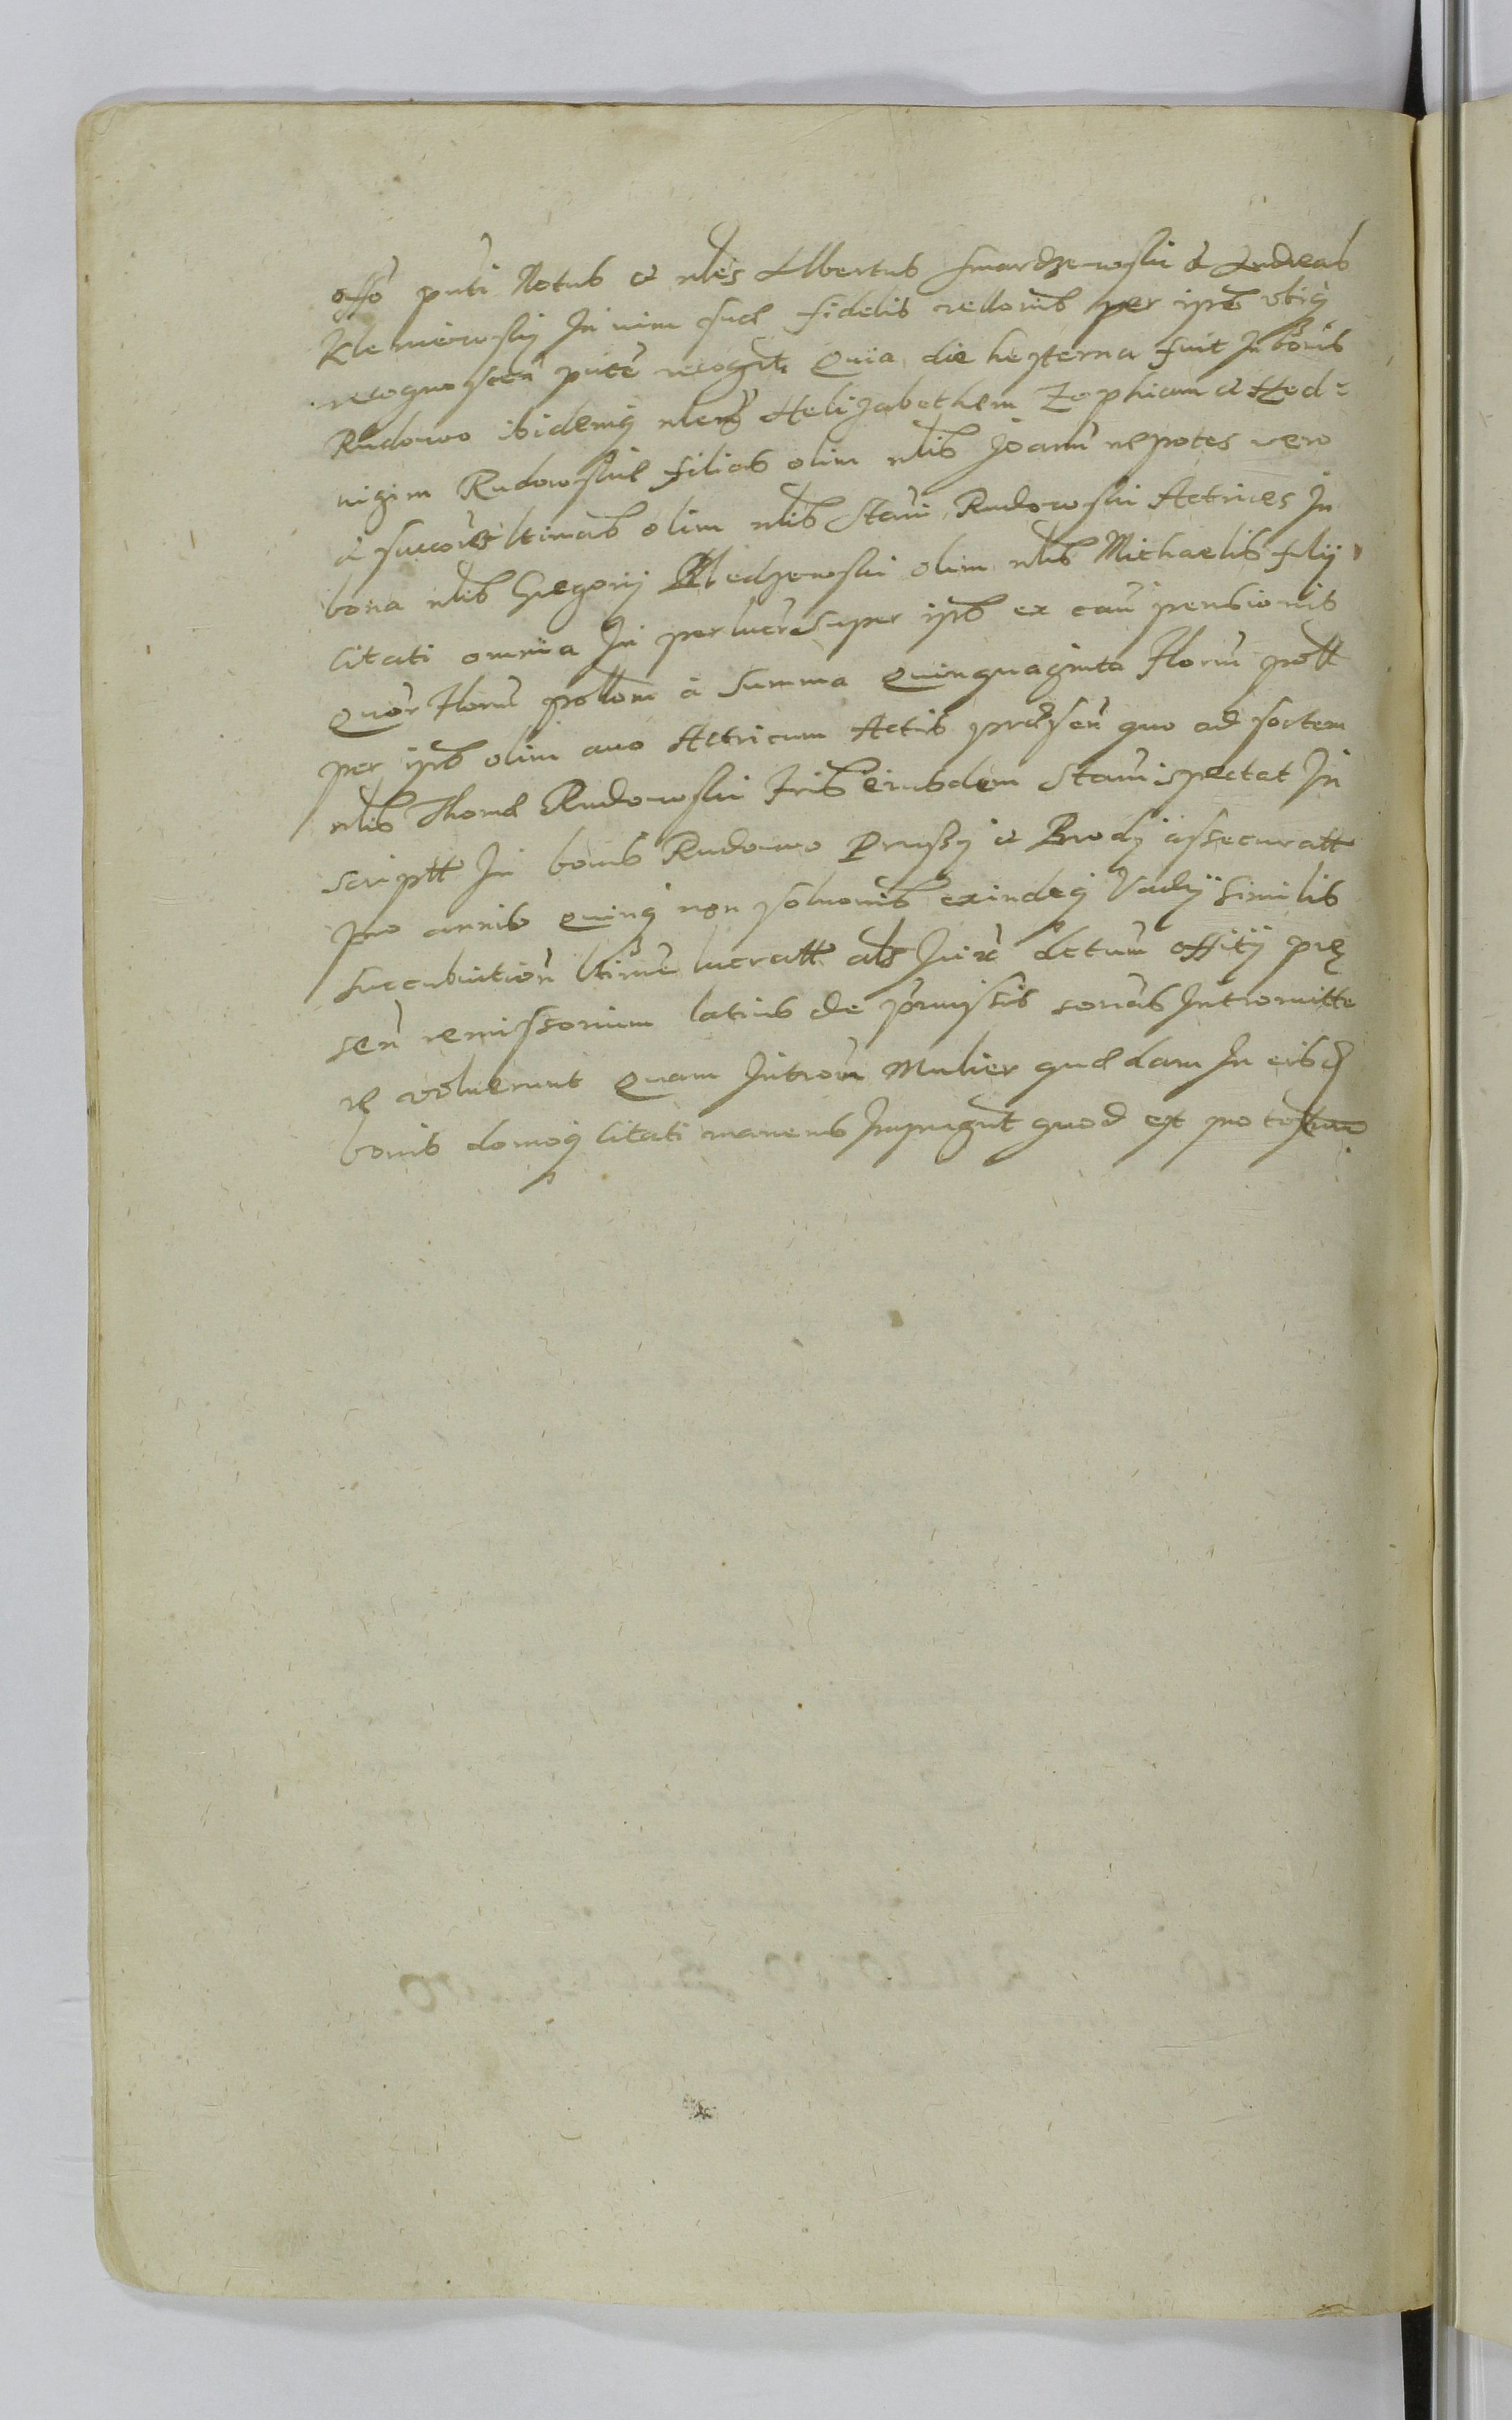 offo pnti Notus et nbles Albertus Smardzewski et Andreas
Kleniewsky In vim suae fidelis rellonis per ipsos vtiq
recognoscen pntte recogrt. Quia die hesterna fuit In bonis
Rudowo ibidemq nlem Helizabethem Zophiam et Hed=
vigim Rudowskie filias olim nlis Joann nepotes vero
et succores ltimas olim nlis Stani Rudowski Actrices In
bona nlis Gregorij Bledzewski olim nlis Michaelis filij
citati omnia In perlucris super ipso ex cau pensionis
Quor Floru pollon a Summa Quinquaginta Floru poll
per ipso olim auo Actricum Actis praesen quo ad sortem
nlis Thomae Rudowski fris eiusdem Stani spectat In
scriptt In bonis Rudowo Prussy et Brody assecuratt
pro annis quinq non solucionis exindeq Vadij similis
succubuition ltime lucratt als Iuxa dctum offitij prę
sen remissorium latius de pmissis sonans Intromitte
re voluerunt Quam Introm Mulier quaedam In eisd
bonis domoq citati manens Impugnt quod est protestum